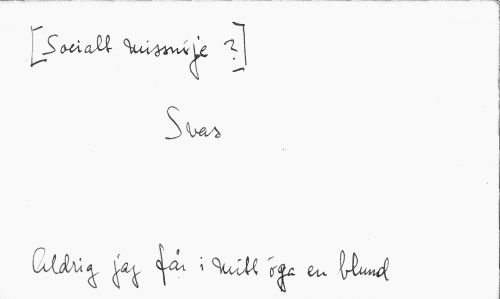 [Socialt missnöje ?]
Svas
Aldrig jag får i mitt öga en blund